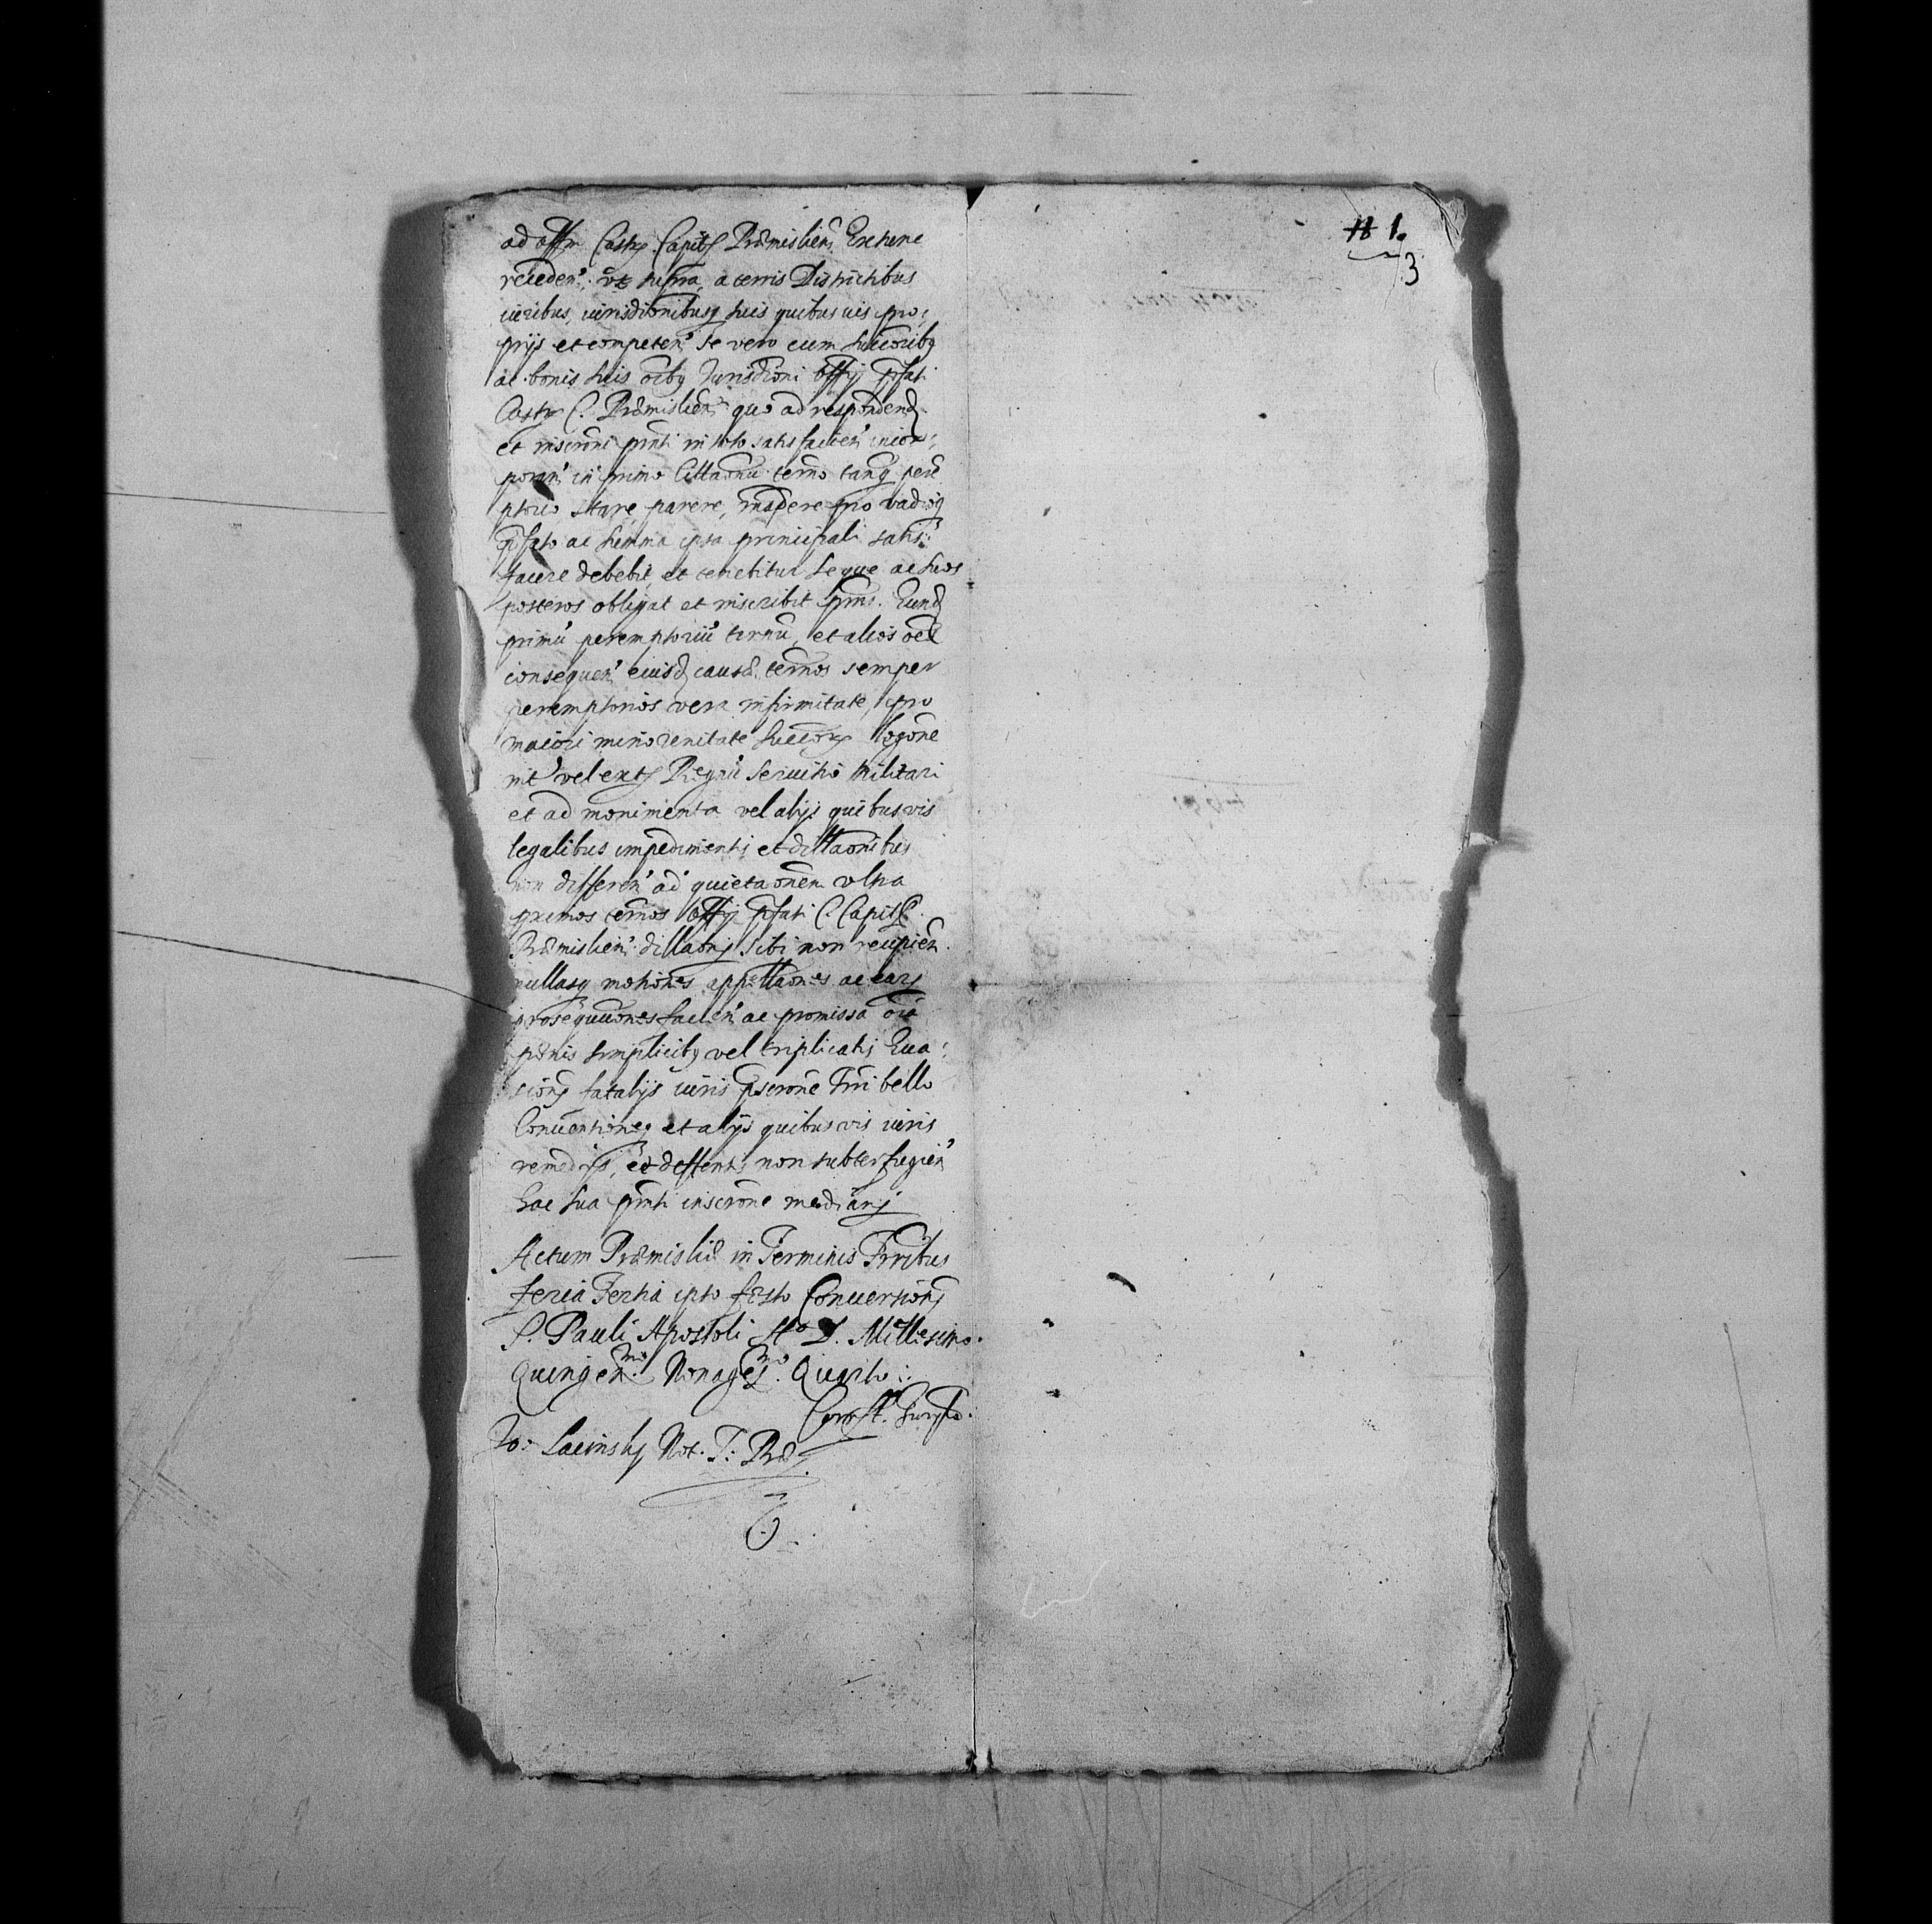 ad offm Castr Capitl Præmislien Extunc
receden ut supra, a terris Districtibus
iuribus, iurisdionibusq suis quibusuis pro:
prijs et competen se vero cum succoribq
ac bonis suis oibq Jurisdioni offij pfati
Castr C. Præmislien quo ad respondend
et inscroni pnti in toto satisfacien incor:
poran in primo Cittaonu termo tanq perē
ptorio stare, parere, pro vadioq
pfato ac summa ipsa principali satis:
facere debebit, et tenebitur seque ac suos
posteros obligat et inscribit pns. Eund
primu peremptoriu termu, et alios oēs
consequen eiusd causæ termos semper
peremptorios vera infirmitate, pro
maiori minorenitate succor
nt vel extr Regnu seruitio militari
et ad monimenta vel alijs quibusvis
legalibus impedimentis et dillaonibus
non differen ad quietaonem ultra
primos termos offij pfati C. Capitl
Præmislien dillaonis sibi non recipien
nullasq motiones appellaones ac ear
prosequuones facien ac promissa oia
pœnis simplicibq vel triplicatis Eua:
sionis fatalijs iuris pscrone Trri bello
Conuentioneq et alijs quibusvis iuris
remedijs, et deffens non subterfugien
hac sua pnti inscrone median
Actum Præmisliæ in Terminis Trribus
feria Tertia ipso festo Conuersionis
S. Pauli Apostoli Ao D. Millesimo.
Quingenmo. Nonagesmo. Quarto:
Jo: Lacinsky Not. T: Præ
1.
3